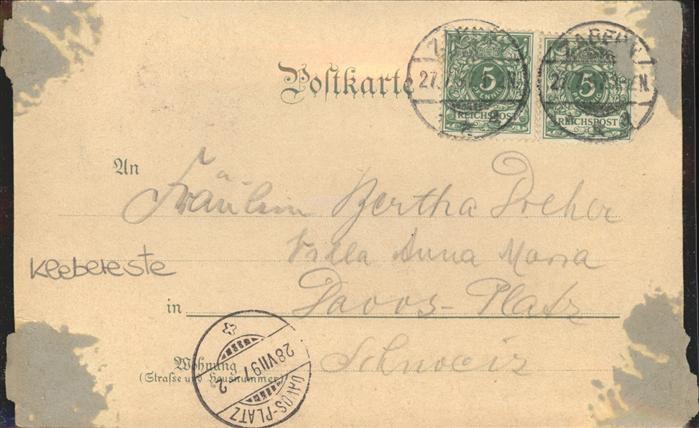 Postkarte
ZABERN
27.
2-N
5
REICHSPOST
5
REICHSPOST
An
Fräulein Bertha Dreher
Villa Anna Maria
Klebereste
in Davos-Platz
Wohnung
(Straße und Hausnummer)
Schweiz
28 VII 97 - 2
DAVOS-PLATZ